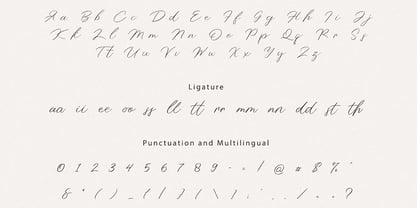 Aa Bb Cc Dd Ee Ff Gg Hh Ii Jj
Kk Ll Mm Nn Oo Pp Qq Rr Ss
Tt Uu Vv Ww Xx Yy Zz
Ligature
aa ii ee oo ss ll tt rr mm nn dd st th
Punctuation and Multilingual
0 1 2 3 4 5 6 7 8 9 - = ! @ # $ % ^
& * ( ) _ { } { \ } ; ' . , / . . ?